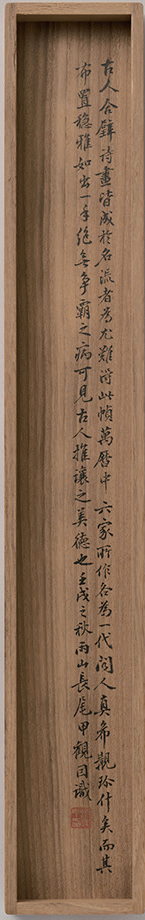 古人合璧詩畫皆成於名流者為尤難得此幀萬曆中六家所作各為一代聞人真希觀珍什矣而其
布置穩雅如出一手絕無爭霸之病可見古人推讓之美德也壬戌之秋雨山長尾甲觀因識